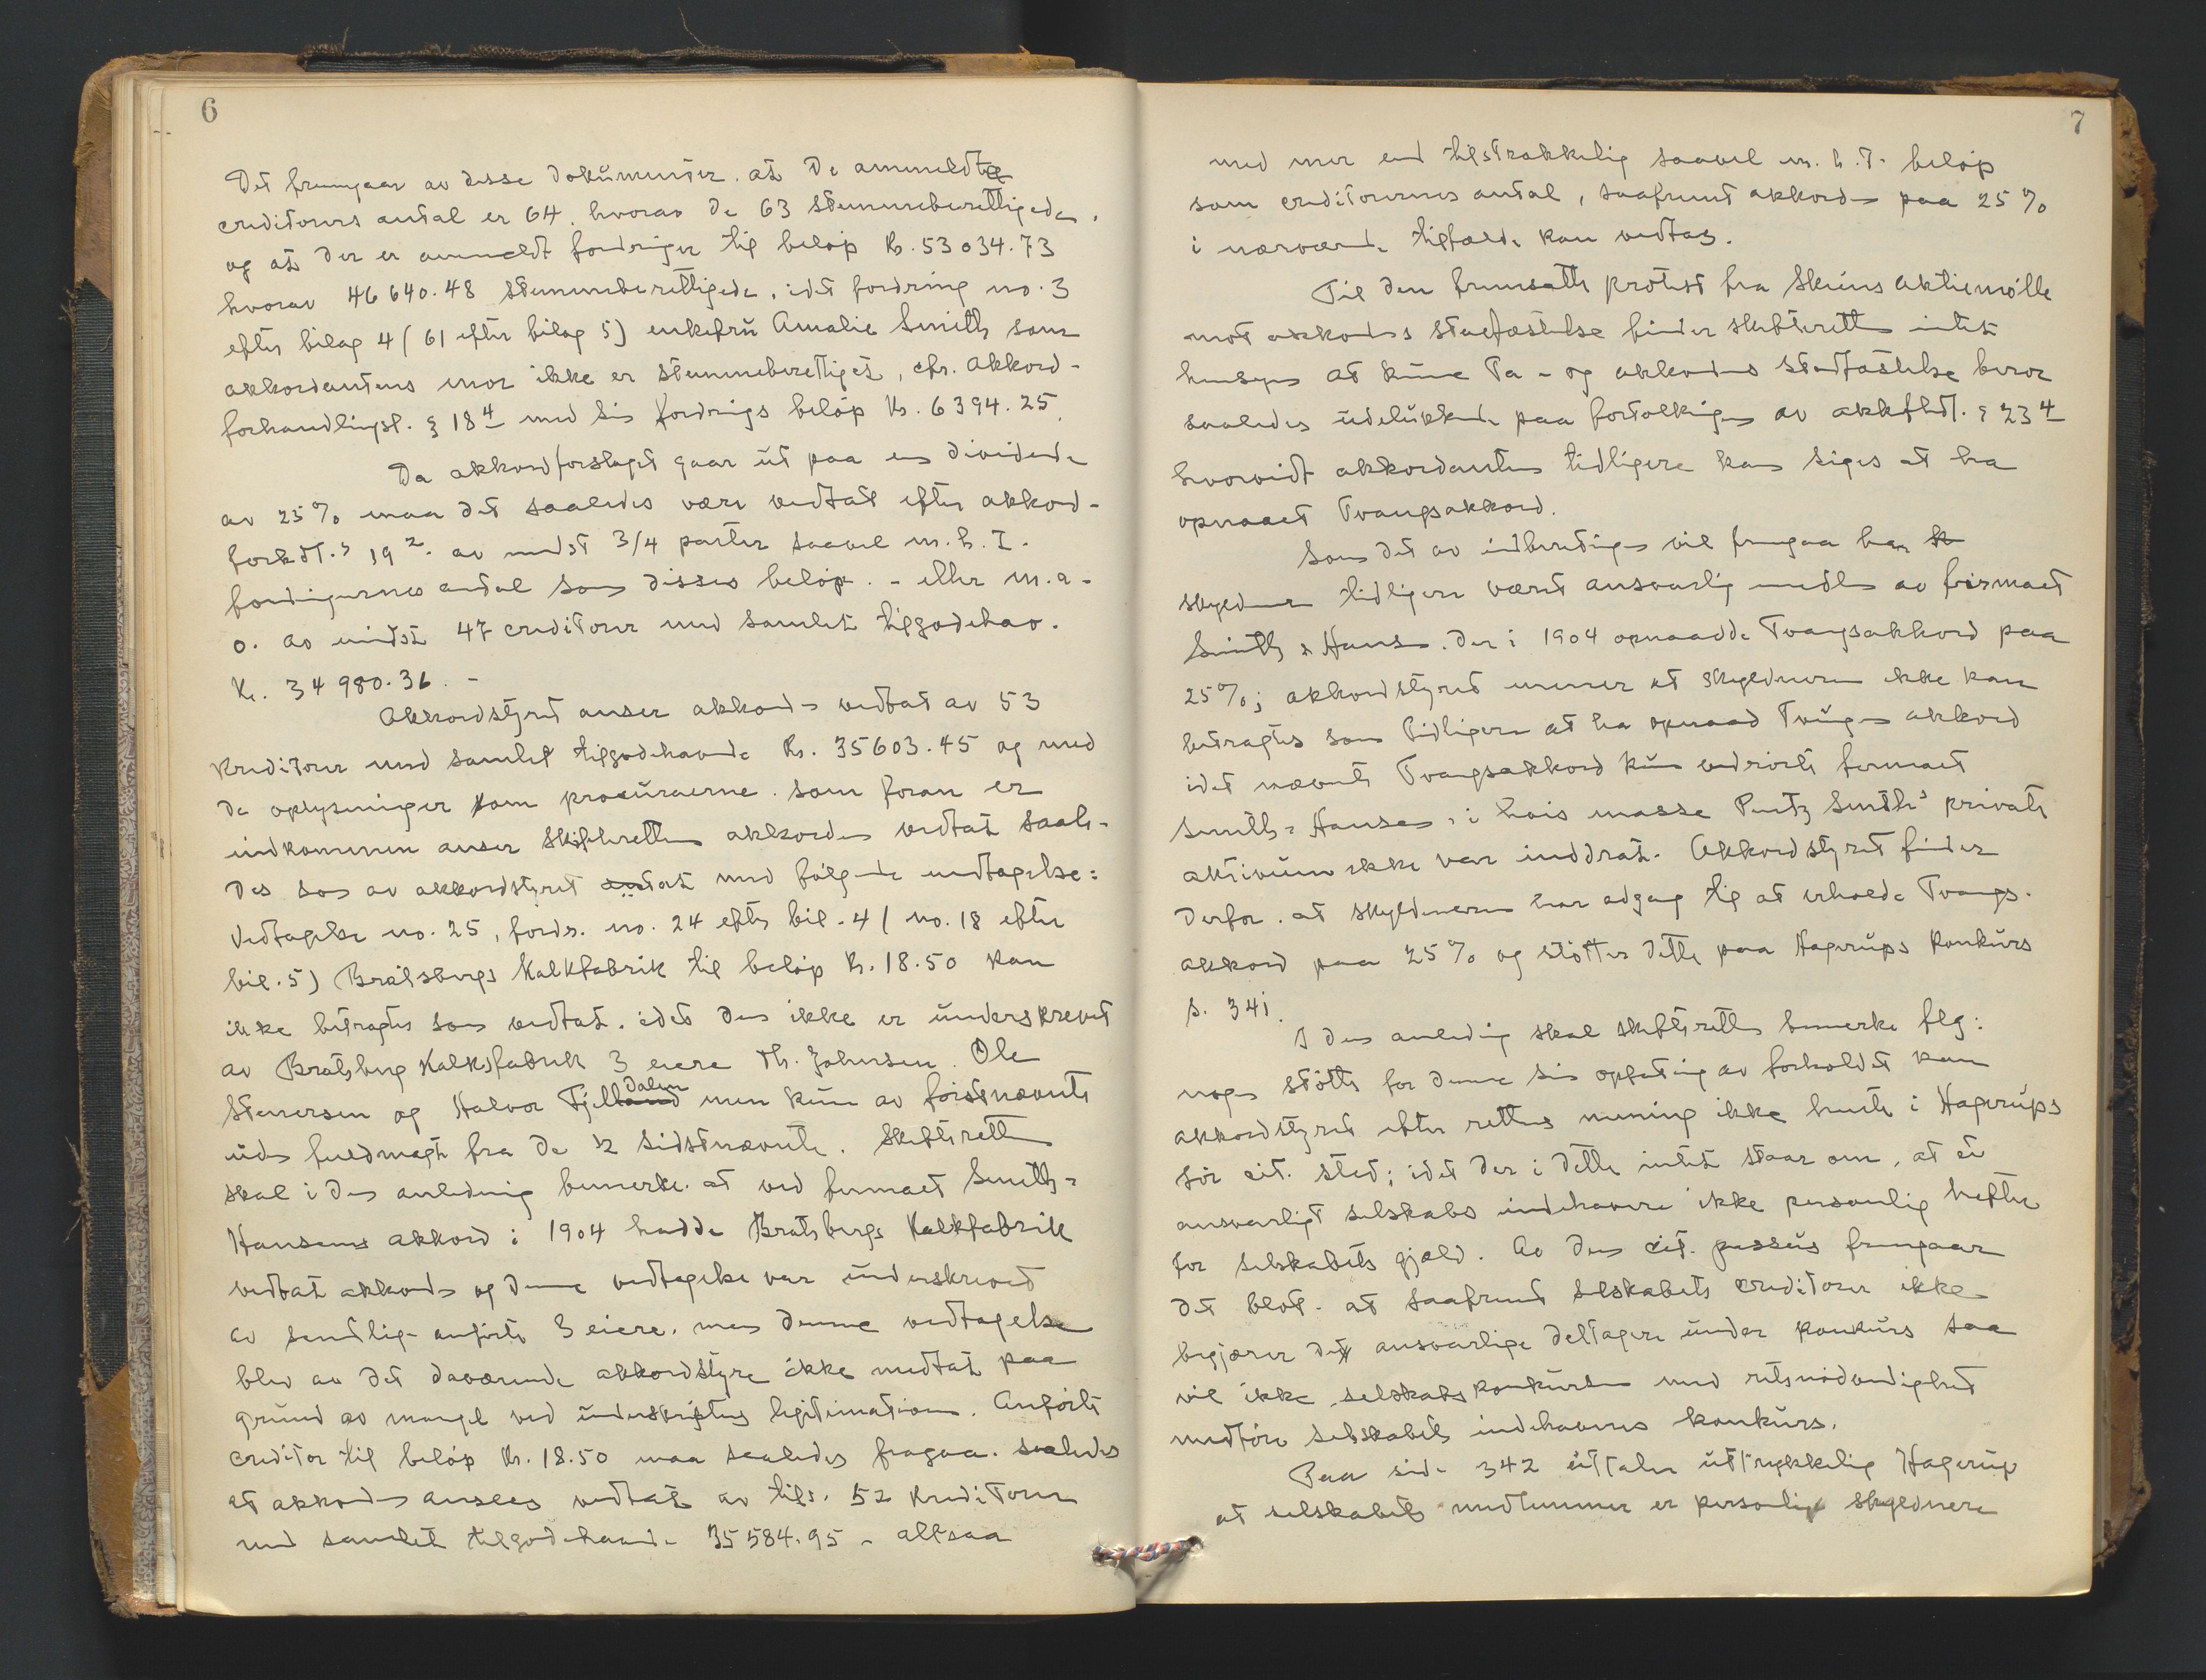 6
Det fremgaar av disse dokumenter. at de anmeldte
creditorers antal er 64. hvorav de 63 stemmeberettigede.
og at der er anmeldt fordringer til beløp Kr. 53034.73
hvorav 46640.48 stemmeberettigede. idet fordring no. 3
efter bilag 4 (61 efter bilag 5) enkefru Amalie Smith som
akkordantens mor ikke er stemmeberettiget, cfr. Akkord-
forhandlingsl. § 18 4 med sin fordrings beløp Kr. 6394.25.
Da akkordforslaget gaar ut paa en dividende
av 25% maa det saaledes være vedtat efter akkord-
forhdl. § 19 2. av mindst 3/4 parter saavel m. h. t.
fordringernes antal som disses beløp. - eller m. a.
o. av mindst 47 creditorer med samlet tilgodehav.
Kr. 34980.36. -
Akkordstyret anser akkorden vedtat av 53
kreditorer med samlet tilgodehavende Kr. 35603.45 og med
de oplysninger om procuraerne. som foran er
indkommen anser skifteretten akkorden vedtat saale-
des som av akkordstyret antat med følgende undtagelse:
Vedtagelse no. 25, fordr. no. 24 efter bil. 4 (no. 18 efter
bil. 5) Bratsbergs Kalkfabrik til beløp Kr. 18.50 kan
ikke betragtes som vedtat. idet den ikke er underskrevet
av Bratsberg Kalkfabrik 3 eiere Th. Johnsen. Ole
Stenersen og Halvor Fjelldalen men kun av førstnævnte
uden fuldmagt fra de 2 sidstnævnte. Skifteretten
skal i den anledning bemerke. at ved firmaet Smith &
Hansens akkord i 1904 hadde Bratsbergs Kalkfabrik
vedtat akkorden og denne vedtagelse var underskrevet
av samtlige anførte 3 eiere. men denne vedtagelse
blev av det daværende akkordstyre ikke medtat paa
grund av mangel ved underskriftens legitimation. Anførte
creditor til beløp Kr. 18.50 maa saaledes fragaa. saaledes
at akkorden ansees vedtat av tils. 52 kreditorer
med samlet tilgodehavende 35584.95 - altsaa
7
med mer end tilstrækkelig saavel m. h. t. beløp
som creditorernes antal, saafremt akkorden paa 25%
i nærværende tilfælde kan vedtas.
Til den fremsatte protest fra Skiens Aktiemølle
mot akkordens stadfæstelse finder skifteretten intet
hensyn at kunne ta - og akkordens stadfæstelse beror
saaledes udelukkende paa fortolkningen av akkfhdl. § 23 4
hvorvidt akkordanten tidligere kan siges at ha
opnaaet Tvangsakkord.
Som det av indberetningen vil fremgaa har
skyldneren tidligere været ansvarlig medlem av firmaet
Smith & Hansen. der i 1904 opnaadde Tvangsakkord paa
25%; akkordstyret mener at skyldneren ikke kan
betragtes som tidligere at ha opnaad Tvungen akkord
idet nævnte Tvangsakkord kun vedrørte firmaet
Smith & Hansen. i hvis masse Smith's private
aktivum ikke var inddrat. Akkordstyret finder
derfor. at skyldneren har adgang til at erholde Tvangs-
akkord paa 25% og støtter dette paa Hagerups Konkurs
s. 341.
I den anledning skal skifteretten bemerke flg:
nogen støtte for denne sin opfatning av forholdet kan
akkordstyret efter rettens mening ikke hente i Hagerups
før cit. sted; idet der i dette intet staar om, at et
ansvarligt selskabs indehavere ikke personlig hefter
for selskabets gjæld. Av den cit. passus fremgaar
det blot. at saafremt selskabets creditorer ikke
begjærer de ansvarlige deltagere under konkurs saa
vil ikke selskabskonkursen med retsnødvendighet
medføre selskabets indehaveres konkurs.
Paa side 342 uttaler uttrykkelig Hagerup
at selskabets medlemmer er personlig skyldnere